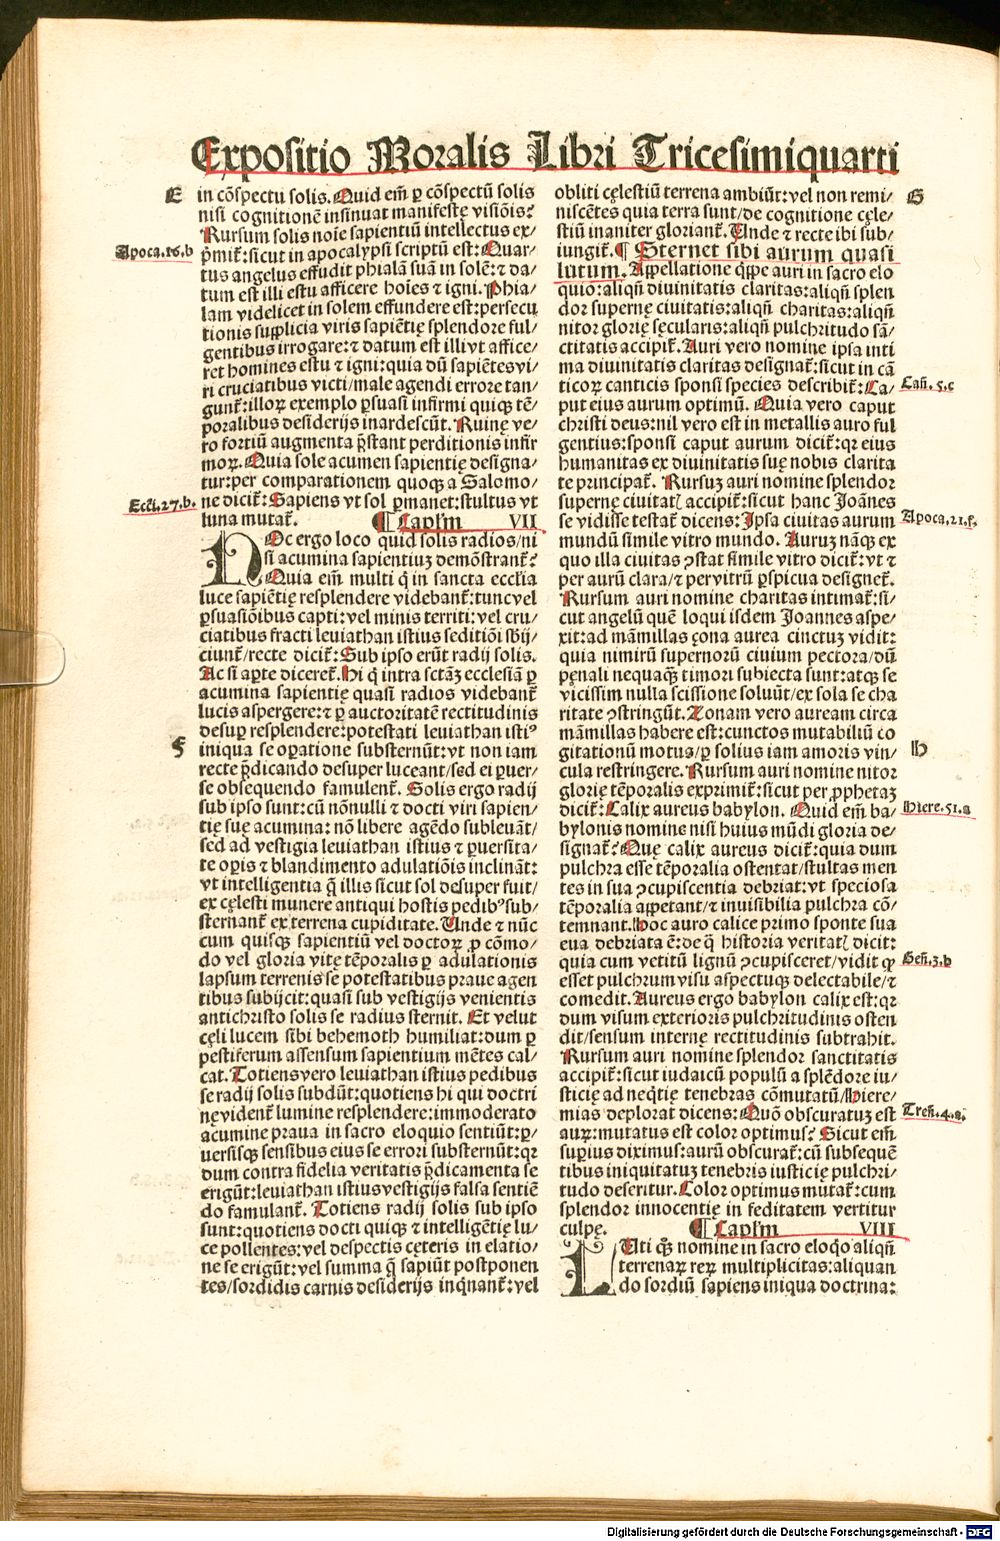 Expositio Moralis Libri Tricesimiquarti
E
in cõspectu solis. Quid em̃ ꝑ cõspectũ solis
nisi cognitionẽ insinuat manifestę visiõis?
Rursum solis noĩe sapientiũ intellectus ex/
Apoca.16.b
p̃mit̃: sicut in apocalypsi scriptũ est: Quar/
tus angelus effudit phialã suã in solẽ: ⁊ da/
tum est illi estu afficere hoĩes ⁊ igni. Phia/
lam videlicet in solem effundere est: persecu
tionis supplicia viris sapiẽtię splendore ful/
gentibus irrogare: ⁊ datum est illi vt affice/
ret homines estu ⁊ igni: quia dũ sapiẽtes vi/
ri cruciatibus victi/male agendi errore tan/
gunt̃: illoꝝ exemplo ꝑsuasi infirmi quiqꝫ tẽ/
poralibus desiderijs inardescũt. Ruinę ve/
ro fortiũ augmenta p̃stant perditionis infir
moꝝ. Quia sole acumen sapientię designa/
tur: per comparationem quoqꝫ a Salomo/
Ecci.27.b.
ne dicit̃: Sapiens vt sol ꝑmanet: stultus vt
luna mutat̃. ¶ Capl̃m VII
HOc ergo loco quid solis radios/ni
si acumina sapientiuꝫ demõstrant̃?
Quia em̃ multi q̃ in sancta eccl̃ia
luce sapiẽtię resplendere videbant̃: tunc vel
ꝑsuasiõibus capti: vel minis territi: vel cru/
ciatibus fracti leviathan istius seditiõi sb̃ij/
ciunt̃/recte dicit̃: Sub ipso erũt radij solis.
Ac si aꝑte diceret̃. Hi q̃ intra sctãꝫ ecclesiã ꝑ
acumina sapientię quasi radios videbant̃
lucis aspergere: ⁊ ꝑ auctoritatẽ rectitudinis
desuꝑ resplendere: potestati leviathan istiꝰ
F
iniqua se oꝑatione substernũt: vt non iam
recte p̃dicando desuper luceant/sed ei ꝑuer/
se obsequendo famulent̃. Solis ergo radij
sub ipso sunt: cũ nõnulli ⁊ docti viri sapien/
tię suę acumina: nõ libere agẽdo subleuãt/
sed ad vestigia leviathan istius ⁊ ꝑuersita/
te oꝑis ⁊ blandimento adulatiõis inclinãt:
vt intelligentia q̃ illis sicut sol desuper fuit/
ex cęlesti munere antiqui hostis pedibꝰ sub/
sternant̃ ex terrena cupiditate. Unde ⁊ nũc
cum quisqꝫ sapientiũ vel doctoꝝ ꝓ cõmo/
do vel gloria vitę tẽporalis ꝑ adulationis
lapsum terrenis se potestatibus praue agen
tibus subijcit: quasi sub vestigijs venientis
antichristo solis se radius sternit. Et velut
cęli lucem sibi behemoth humiliat: dum ꝑ
pestiferum assensum sapientium mẽtes cal/
cat. Totiens vero leviathan istius pedibus
se radij solis subdũt: quotiens hi qui doctri
nę vident̃ lumine resplendere: immoderato
acumine praua in sacro eloquio sentiũt: ꝑ/
uersisqꝫ sensibus eius se errori substernũt: qꝛ
dum contra fidelia veritatis p̃dicamenta se
erigũt: leviathan istius vestigijs falsa sentiẽ
do famulant̃. Totiens radij solis sub ipso
sunt: quotiens docti quiqꝫ ⁊ intelligẽtię lu/
ce pollentes: vel despectis cęteris in elatio/
ne se erigũt: vel summa q̃ sapiũt postponen
tes/sordidis carnis desiderijs inq̃nant̃: vel
obliti cęlestiũ terrena ambiũt: vel non remi/
G
niscẽtes quia terra sunt/de cognitione cęle/
stiũ inaniter gloriant̃. Unde ⁊ recte ibi sub/
iungit̃. ¶ Sternet sibi aurum quasi
lutum. Appellatione q̃ppe auri in sacro elo
quio: aliqñ diuinitatis claritas: aliqñ splen
dor supernę ciuitatis: aliqñ charitas: aliqñ
nitor glorię sęcularis: aliqñ pulchritudo sã/
ctitatis accipit̃. Auri vero nomine ipsa inti
ma diuinitatis claritas designat̃: sicut in cã
ticoꝝ canticis sponsi species describit̃: Ca/
Cañ.5.c
put eius aurum optimũ. Quia vero caput
christi deus: nil vero est in metallis auro ful
gentius: sponsi caput aurum dicit̃: qꝛ eius
humanitas ex diuinitatis suę nobis clarita
te principat̃. Rursuꝫ auri nomine splendor
supernę ciuitatꝭ accipit̃: sicut hanc Joãnes
se vidisse testat̃ dicens: Ipsa ciuitas aurum
Apoca.21.f.
mundũ simile vitro mundo. Auruꝫ nãqꝫ ex
quo illa ciuitas ꝯstat simile vitro dicit̃: vt ⁊
per aurũ clara/⁊ per vitrũ ꝑspicua designet̃.
Rursum auri nomine charitas intimat̃: si/
cut angelũ quẽ loqui isdem Joannes aspe/
xit: ad mãmillas çona aurea cinctuꝫ vidit:
quia nimirũ supernorũ ciuium pectora/dũ
pęnali nequaqꝫ timori subiecta sunt: atqꝫ se
vicissim nulla scissione soluũt/ex sola se cha
ritate ꝯstringũt. Zonam vero auream circa
mãmillas habere est: cunctos mutabiliũ co
H
gitationũ motus/ꝑ solius iam amoris vin/
cula restringere. Rursum auri nomine nitor
glorię tẽporalis exprimit̃: sicut per ꝓphetaꝫ
dicit̃: Calix aureus babylon. Quid em̃ ba/
Hiere.51.a
bylonis nomine nisi huius mũdi gloria de/
signat̃? Quę calix aureus dicit̃: quia dum
pulchra esse tẽporalia ostentat/stultas men
tes in sua ꝯcupiscentia debriat: vt speciosa
tẽporalia appetant/⁊ inuisibilia pulchra cõ/
temnant. Hoc auro calice primo sponte sua
eua debriata ẽ: de q̃ historia veritatꝭ dicit:
quia cum vetitũ lignũ ꝯcupisceret/vidit ꝙ
Geñ.3.b
esset pulchrum visu aspectuqꝫ delectabile/⁊
comedit. Aureus ergo babylon calix est: qꝛ
dum visum exterioris pulchritudinis osten
dit/sensum internę rectitudinis subtrahit.
Rursum auri nomine splendor sanctitatis
accipit̃: sicut iudaicũ populũ a splẽdore iu/
sticię ad neq̃tię tenebras cõmutatũ/Hiere/
mias deplorat dicens: Quõ obscuratuꝫ est
Treñ.4.a.
auꝝ: mutatus est color optimus? Sicut em̃
suꝑius diximus: aurũ obscurat̃: cũ subsequẽ
tibus iniquitatuꝫ tenebris iusticię pulchri/
tudo deseritur. Color optimus mutat̃: cum
splendor innocentię in feditatem vertitur
culpę. ¶ Capl̃m VIII
LUti qq̃ nomine in sacro eloq̃o aliqñ
terrenaꝝ reꝝ multiplicitas: aliquan
do sordiũ sapiens iniqua doctrina:
Digitalisierung gefördert durch die Deutsche Forschungsgemeinschaft - DFG